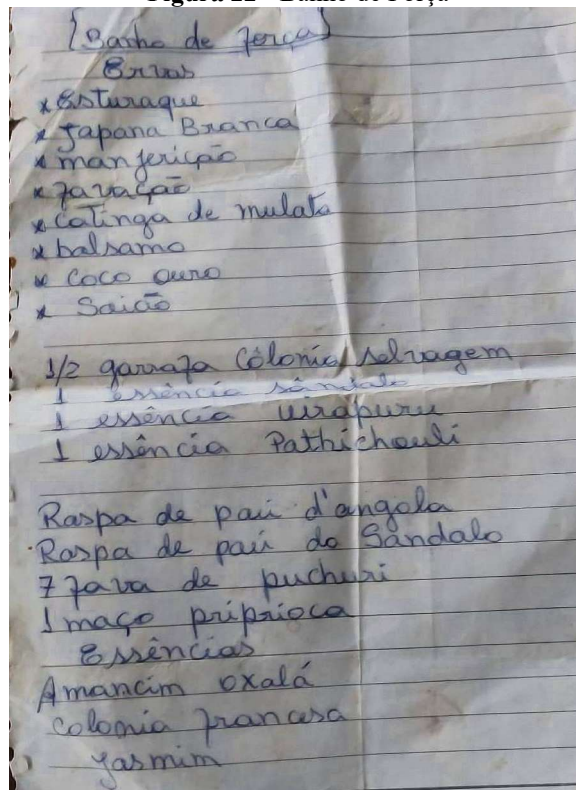 [Banho de força]
Ervas
* Esturaque
* Japana Branca
* manjericão
* favacão
* catinga de mulata
* balsamo
* coco ouro
* Saião
1/2 garrafa Colonia selvagem
1 essência sândalo
1 essência uirapuru
1 essência Pathichouli
Raspa de pau d'angola
Raspa de pau do Sandalo
7 fava de puchuri
1 maço priprioca
Essências
Amancim oxalá
Colonia francesa
Jasmim